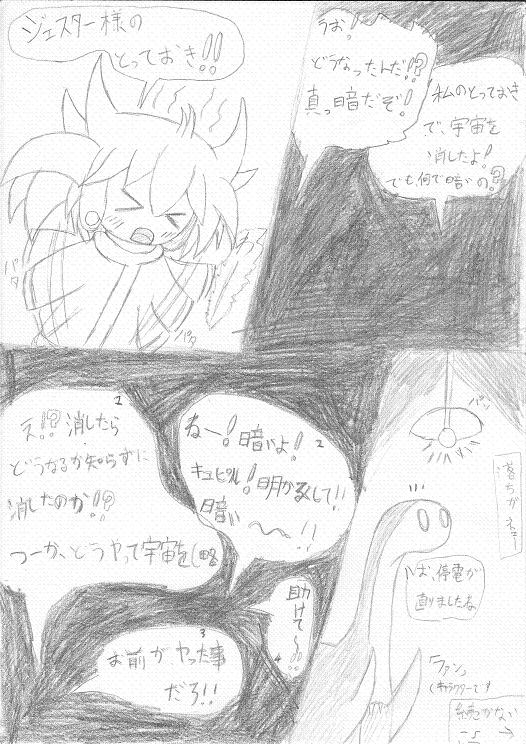 ジェスター様の
とっておき!!
パタ
パタ
うお!
どうなったんだ!?
真っ暗だぞ!
私のとっておき
で、宇宙を
消したよ!
でも何で暗いの?
1
え!?消したら
どうなるか知らずに
消したのか!!?
つーか、どうやって宇宙を(略
ねー!暗いよ! 2
キュピル!明かるくして!!
暗い〜!!
3
お前が、やった事
だろ!!
助けて〜!!
4
パッ
落ちがネェー
お、停電が
直りましたね
「ファン」
(キャラクターです
続かない